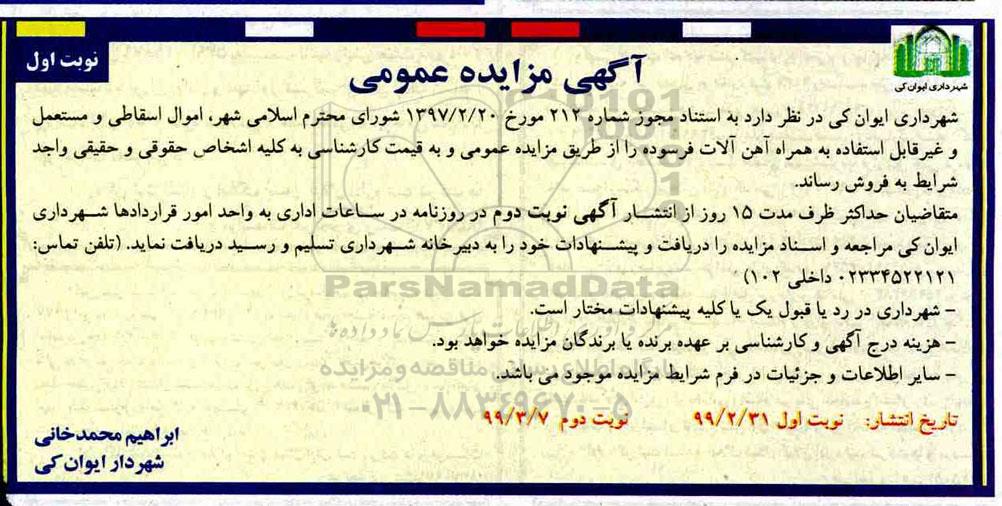 نوبت اول
آگهی مزایده عمومی
شهرداری ایوان کی
شهرداری ایوان کی در نظر دارد به استناد مجوز شماره ۲۱۲ مورخ ۱۳۹۷/۲/۲۰ شورای محترم اسلامی شهر، اموال اسقاطی و مستعمل
و غیرقابل استفاده به همراه آهن آلات فرسوده را از طریق مزایده عمومی و به قیمت کارشناسی به کلیه اشخاص حقوقی و حقیقی واجد
شرایط به فروش رساند.
متقاضیان حداکثر ظرف مدت ۱۵ روز از انتشار آگهی نوبت دوم در روزنامه در ساعات اداری به واحد امور قراردادها شهرداری
ایوان کی مراجعه و اسناد مزایده را دریافت و پیشنهادات خود را به دبیرخانه شهرداری تسلیم و رسید دریافت نماید. (تلفن تماس:
۰۲۳۳۴۵۲۲۱۲۱ داخلی ۱۰۲)
ParsNamadData
- شهرداری در رد یا قبول یک یا کلیه پیشنهادات مختار است.
- هزینه درج آگهی و کارشناسی بر عهده برنده یا برندگان مزایده خواهد بود.
- سایر اطلاعات و جزئیات در فرم شرایط مزایده موجود می باشد.
پایگاه اطلاع رسانی مناقصه و مزایده
۰۲۱-۸۸۳۴۹۶۷۰-۵
تاریخ انتشار: نوبت اول ۹۹/۲/۳۱ نوبت دوم ۹۹/۳/۷
ابراهیم محمدخانی
شهردار ایوان کی